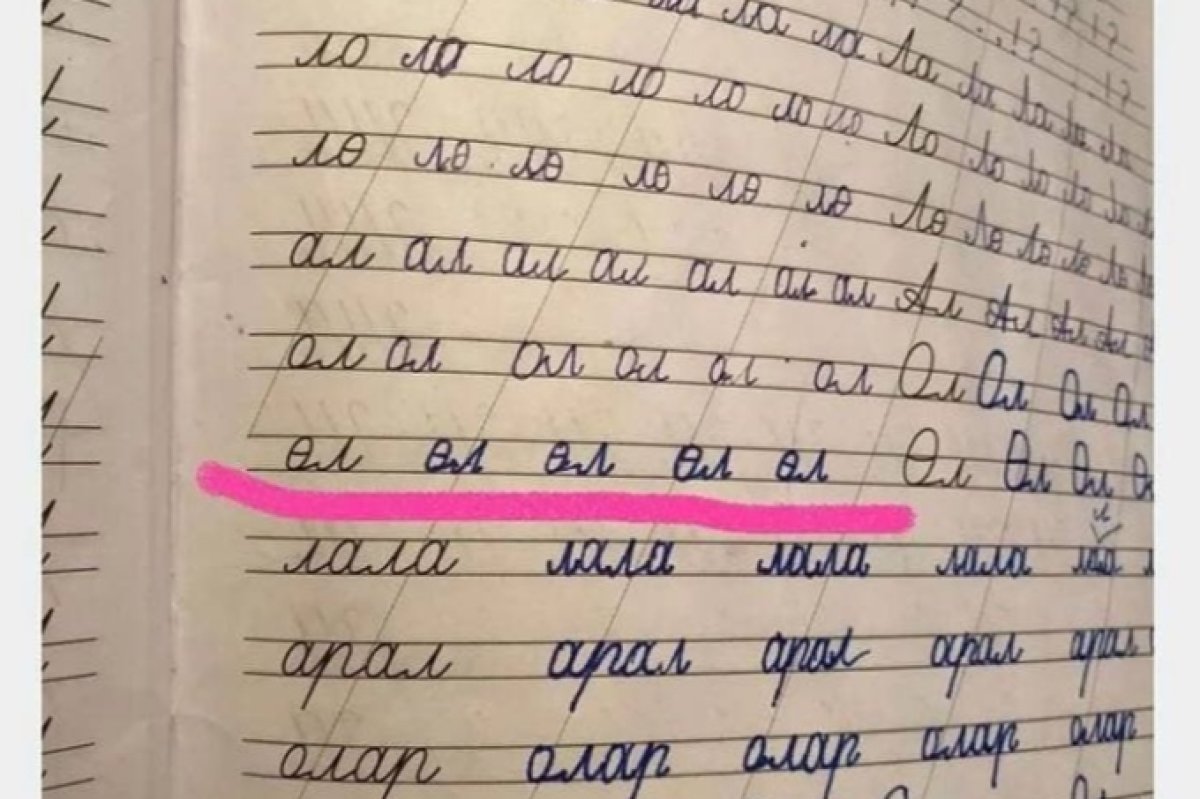 ла ла Ла ла Ла Ла Ла
ло ло ло ло ло ло ло Ло Ло Ло Ло Ло
лө лө лө лө лө лө Лө Лө Лө Лө Лө
ал ал ал ал ал ал ал Ал Ал Ал Ал
ол ол ол ол ол ол Ол Ол Ол Ол
өл өл өл өл өл Өл Өл Өл
лала лала лала лала
арал арал арал арал арал
олар олар олар олар олар